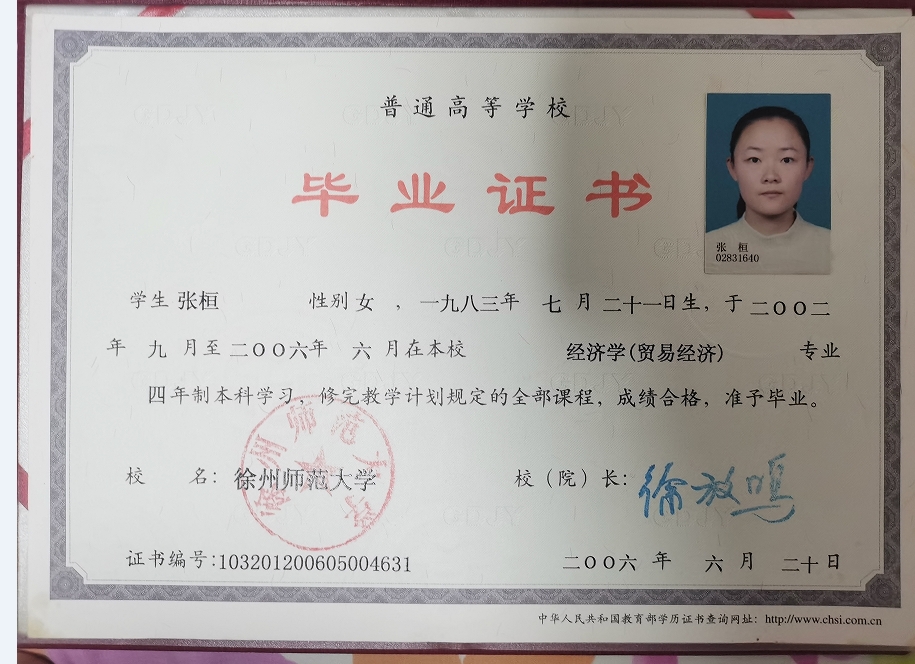 普通高等学校
毕业证书
张 桓
02831640
学生 张桓 性别 女 ，一九八三年 七 月 二十一日生，于 二〇〇二
年 九 月至 二〇〇六年 六 月在本校 经济学(贸易经济) 专业
四年制本科学习，修完教学计划规定的全部课程，成绩合格，准予毕业。
校 名： 徐州师范大学 校（院）长： 徐放鸣
证书编号：103201200605004631 二〇〇六 年 六 月 二十 日
中华人民共和国教育部学历证书查询网址：http://www.chsi.com.cn